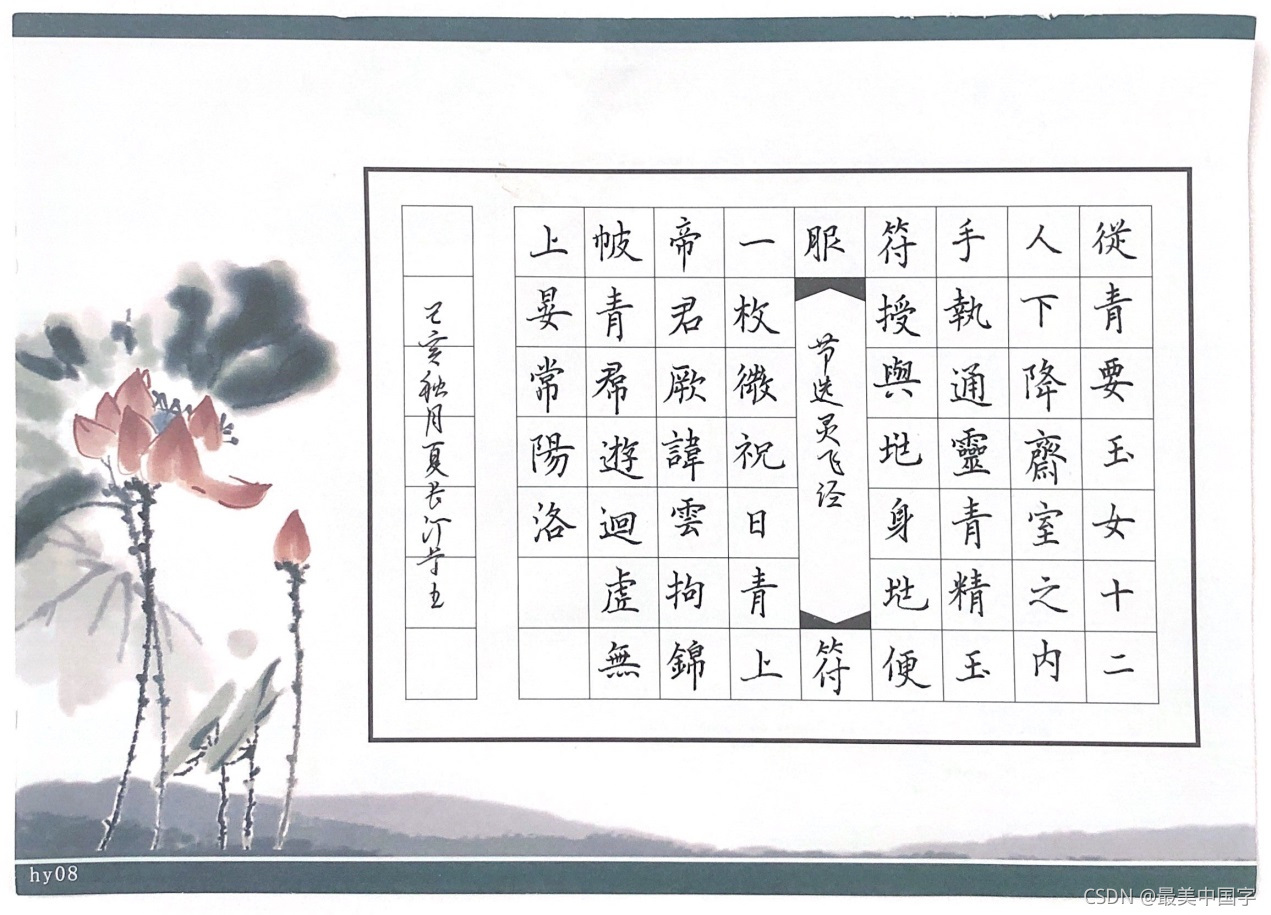 從青要玉女十二
人下降齋室之内
手執通靈青精玉
符授與兆身兆便
服符
节选灵飞经
一枚微祝日青上
帝君厥諱雲拘錦
帔青帬遊迴虛無
上晏常陽洛
己亥秋月夏长江
hy08
CSDN @最美中国字